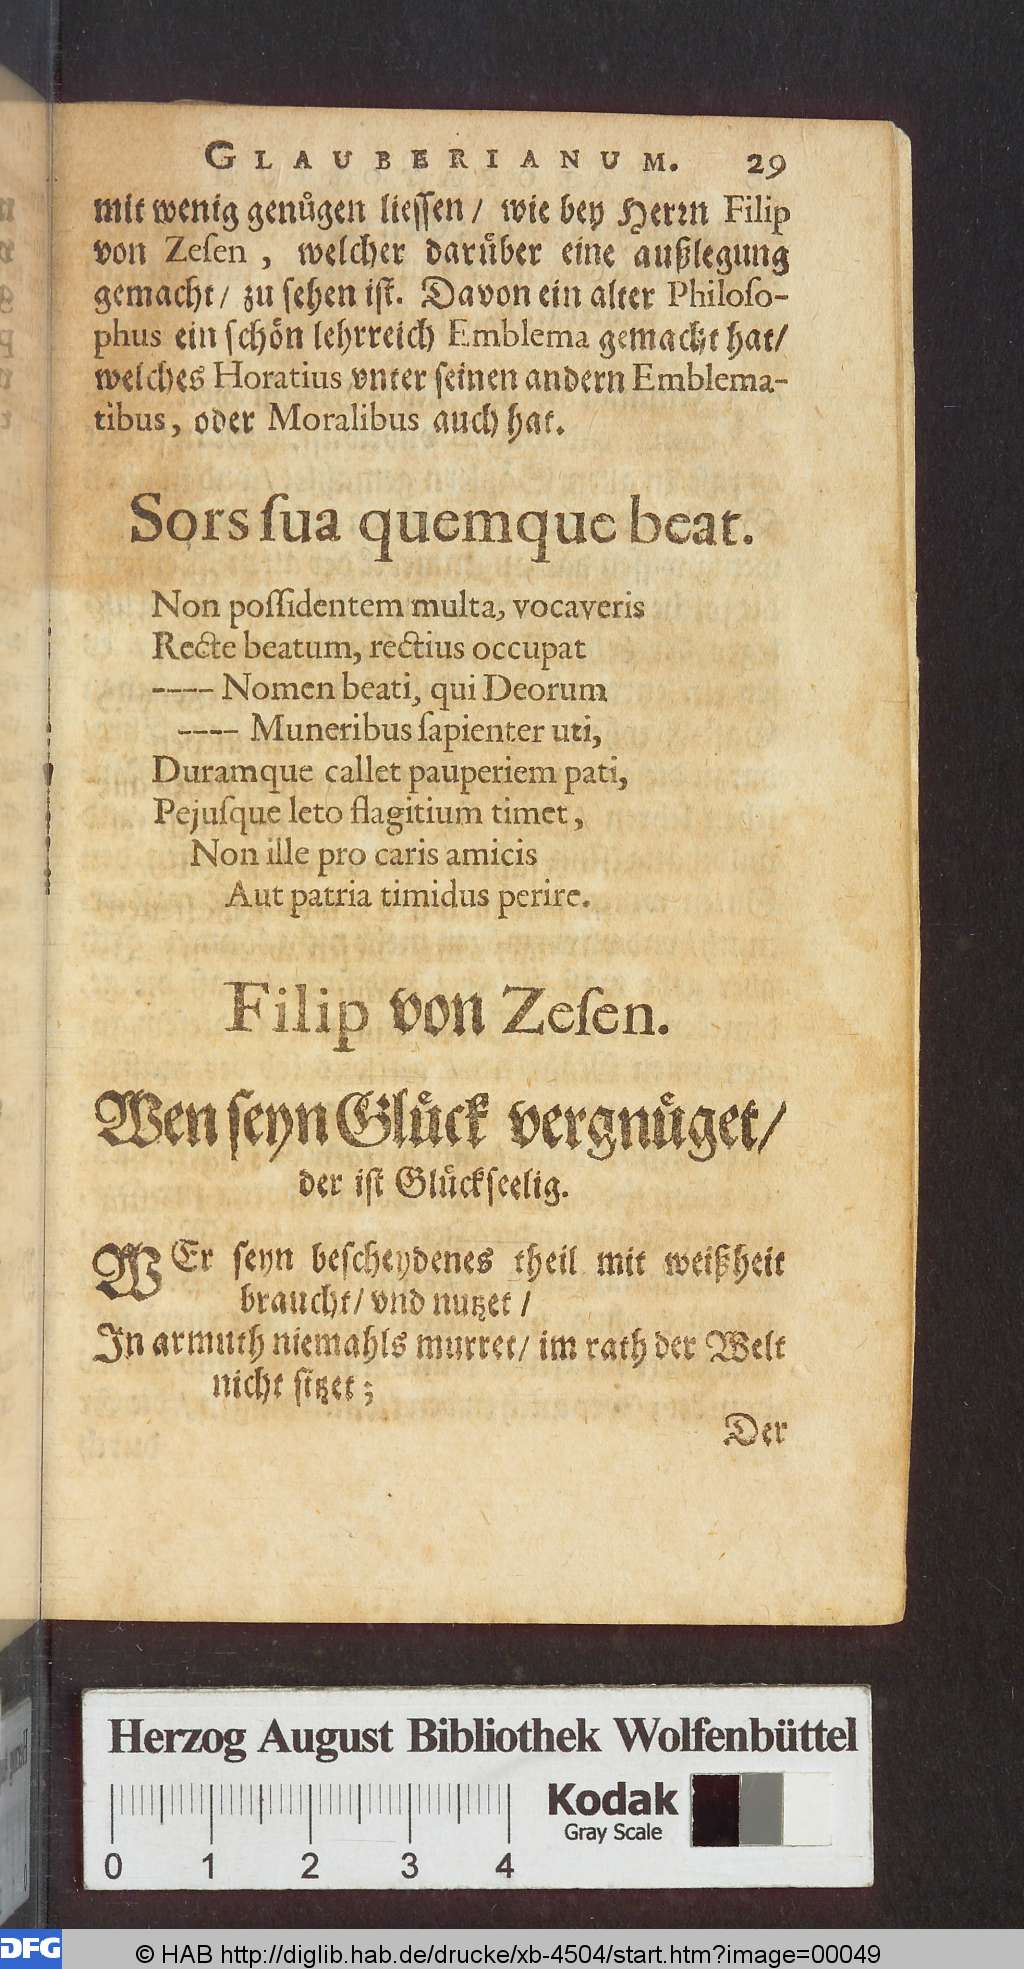 GLAUBERIANUM. 29
mit wenig genuͤgen liessen / wie bey Herꝛn Filip
von Zeſen, welcher daruͤber eine außlegung
gemacht / zu ſehen iſt. Davon ein alter Philoſo-
phus ein ſchoͤn lehrreich Emblema gemacht hat /
welches Horatius vnter ſeinen andern Emblema-
tibus, oder Moralibus auch hat.
Sors ſua quemque beat.
Non poſſidentem multa, vocaveris
Recte beatum, rectius occupat
---- Nomen beati, qui Deorum
---- Muneribus ſapienter uti,
Duramque callet pauperiem pati,
Pejuſque leto flagitium timet,
Non ille pro caris amicis
Aut patria timidus perire.
Filip von Zeſen.
Wen ſeyn Gluͤck vergnuͤget /
der iſt Gluͤckſeelig.
WEr ſeyn beſcheydenes theil mit weißheit
braucht / vnd nutzet /
In armuth niemahls murret / im rath der Welt
nicht ſitzet;
Der
Herzog August Bibliothek Wolfenbüttel
Kodak
Gray Scale
0 1 2 3 4
DFG © HAB http://diglib.hab.de/drucke/xb-4504/start.htm?image=00049